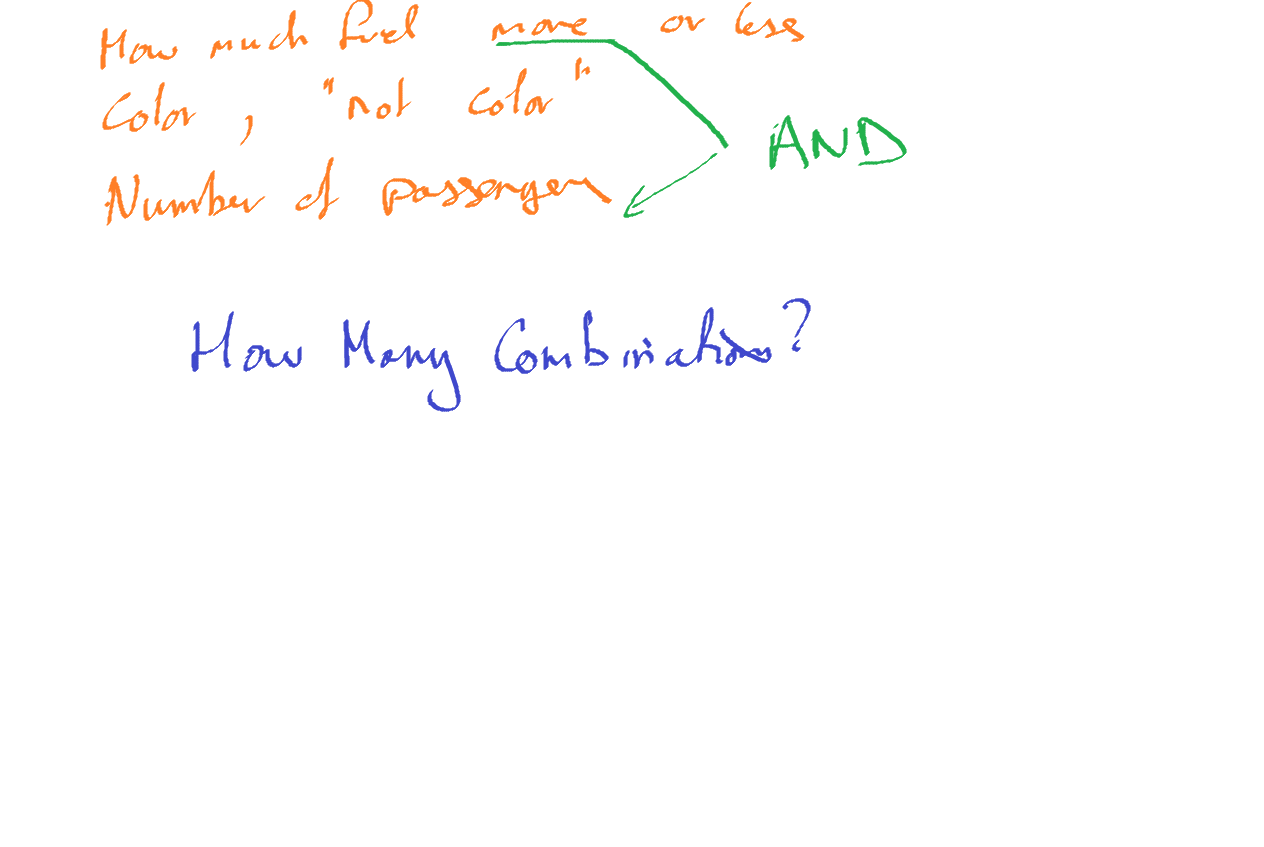 How much fuel more or less
Color, "not color"
AND
Number of passenger
How Many Combinations?